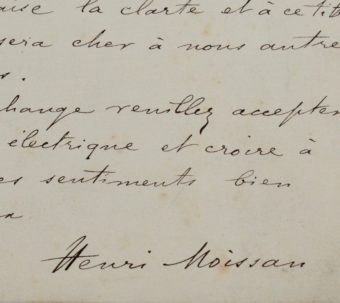 la clarté et à ce tit
sera cher à nous autre
s.
change veuillez accepter
électrique et croire à
es sentiments bien
x
Henri Moissan